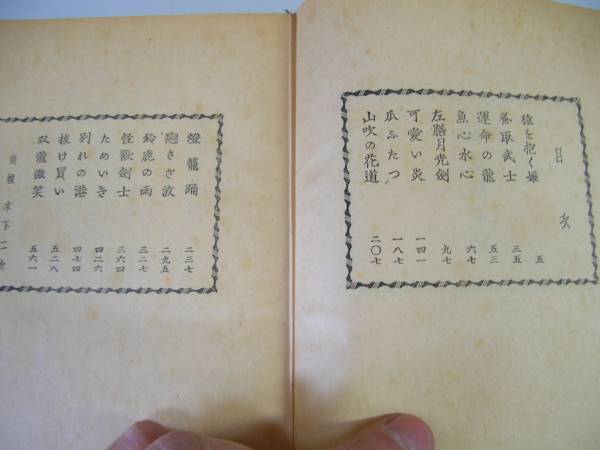 目次
猿を抱く嫁 五
蚤取武士 三五
運命の龍 五三
魚心水心 六七
左膳月光劍 九七
可愛い炎 一四一
瓜ふたつ 一八七
山吹の花道 二〇七
燈籠踊 二三七
戀さざ波 二九五
鈴鹿の雨 三二七
怪獸劍士 三六四
ためいき 四二六
別れの港 四七四
抜け買い 五二八
双龍微笑 五六一
木下二